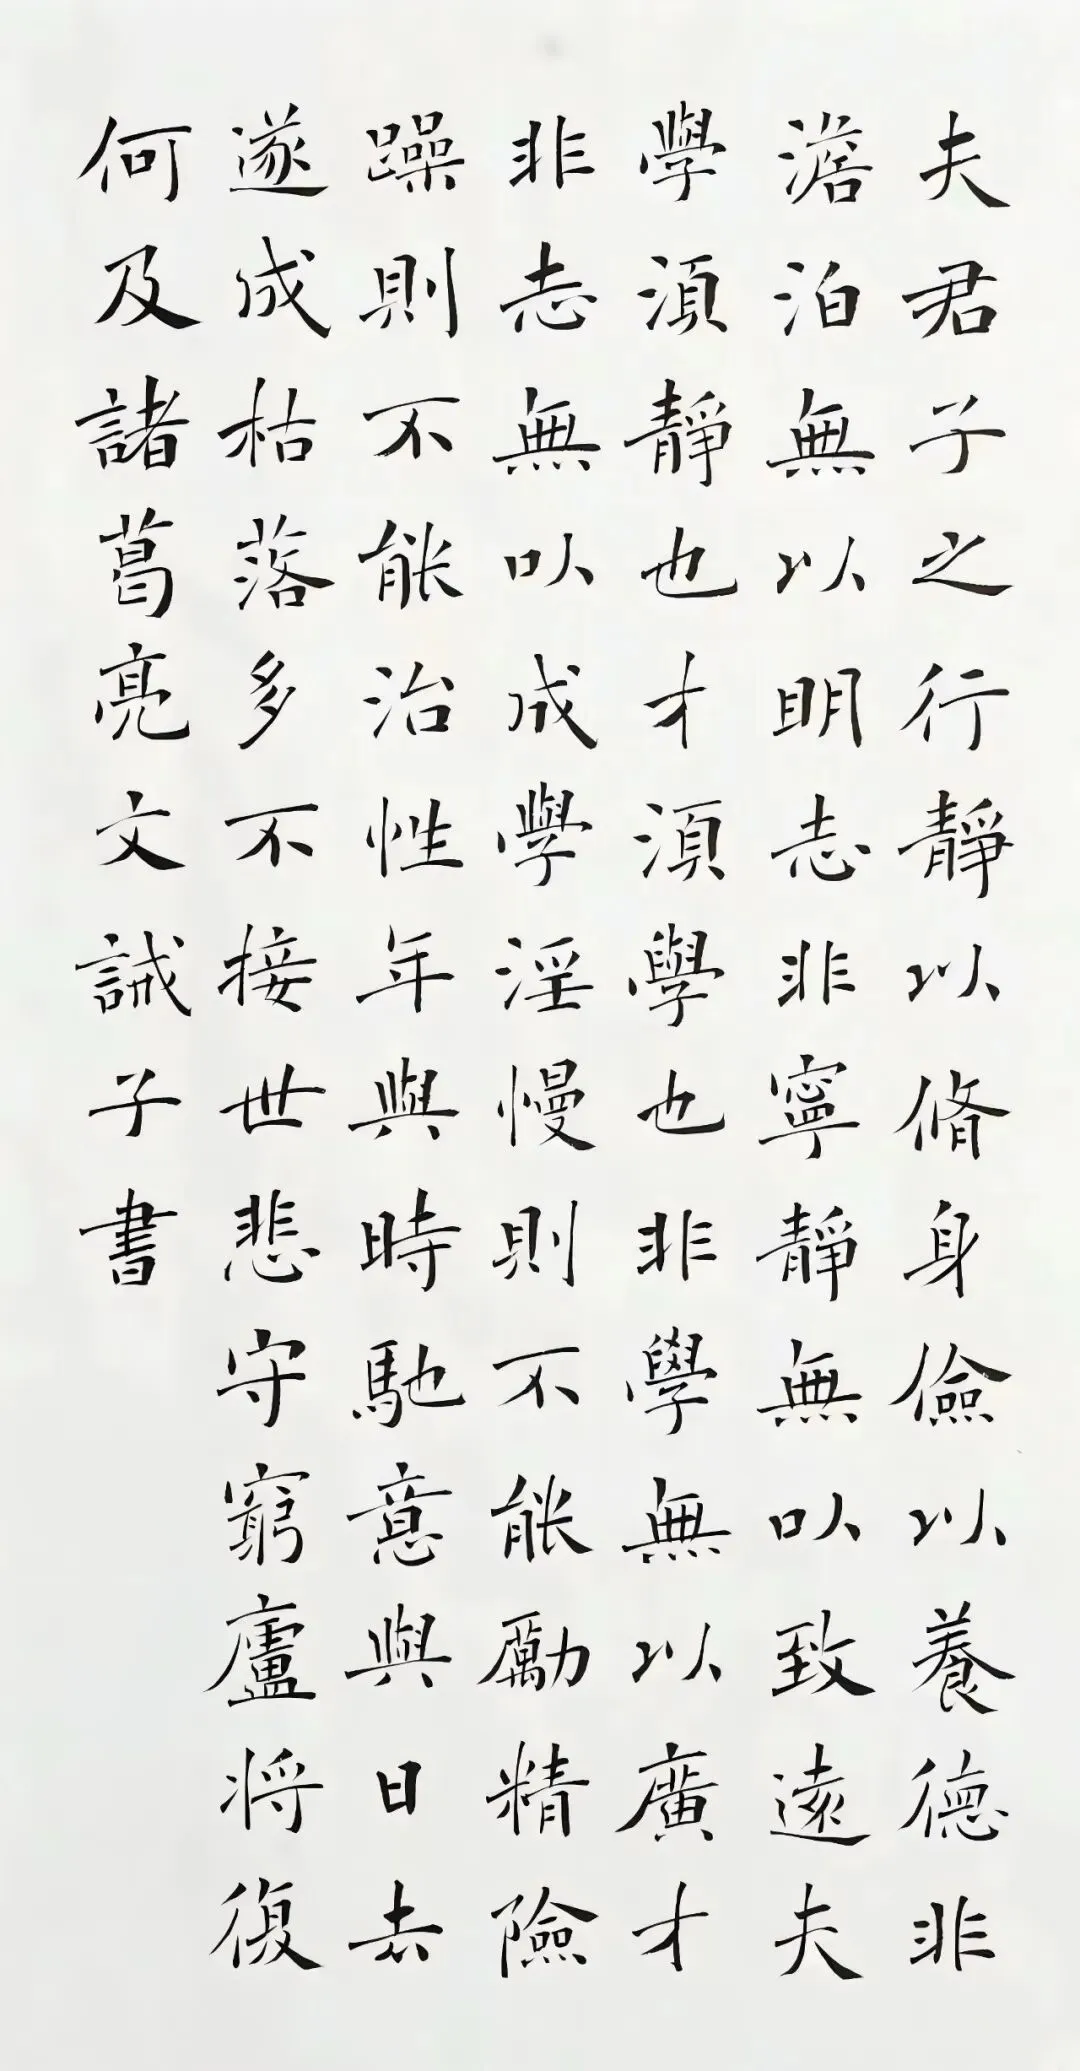 夫君子之行靜以脩身儉以養德非
澹泊無以明志非寧靜無以致遠夫
學須靜也才須學也非學無以廣才
非志無以成學淫慢則不能勵精險
躁則不能治性年與時馳意與日去
遂成枯落多不接世悲守窮廬將復
何及諸葛亮文誡子書